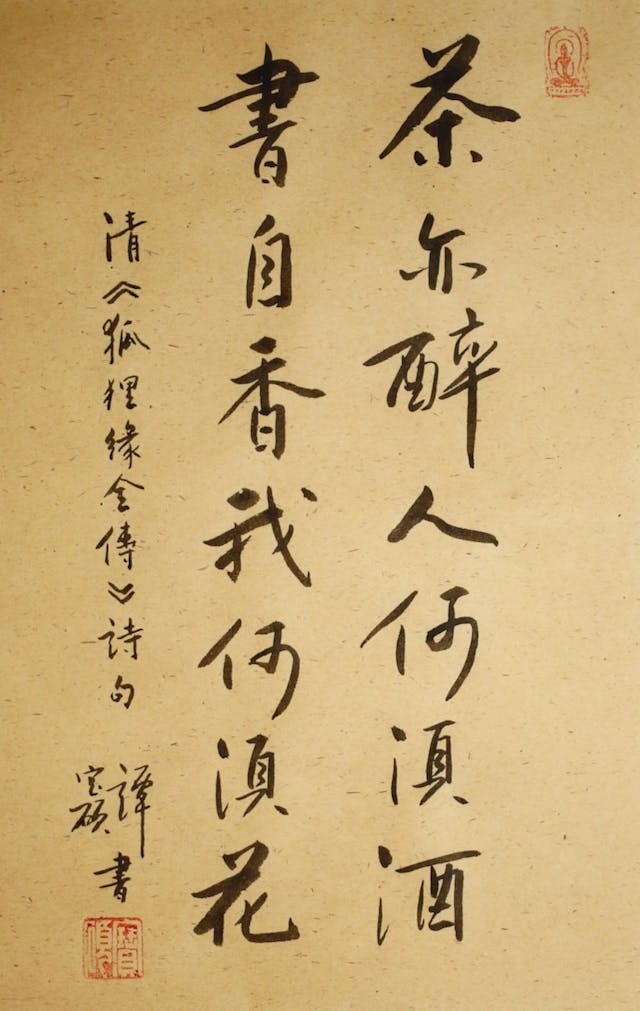 茶亦醉人何須酒
書自香我何須花
清《狐狸緣全傳》詩句
譚寶碩書